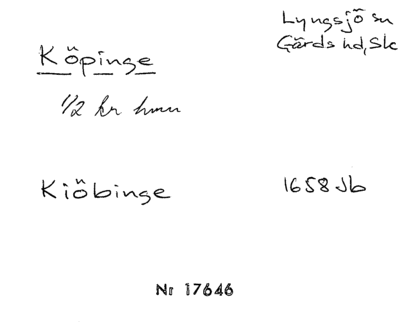 Lyngsjö sn
Gärds hd, Sk
Köpinge
1/2 kr hmn
Kiöbinge
1658 Jb
Nr 17646